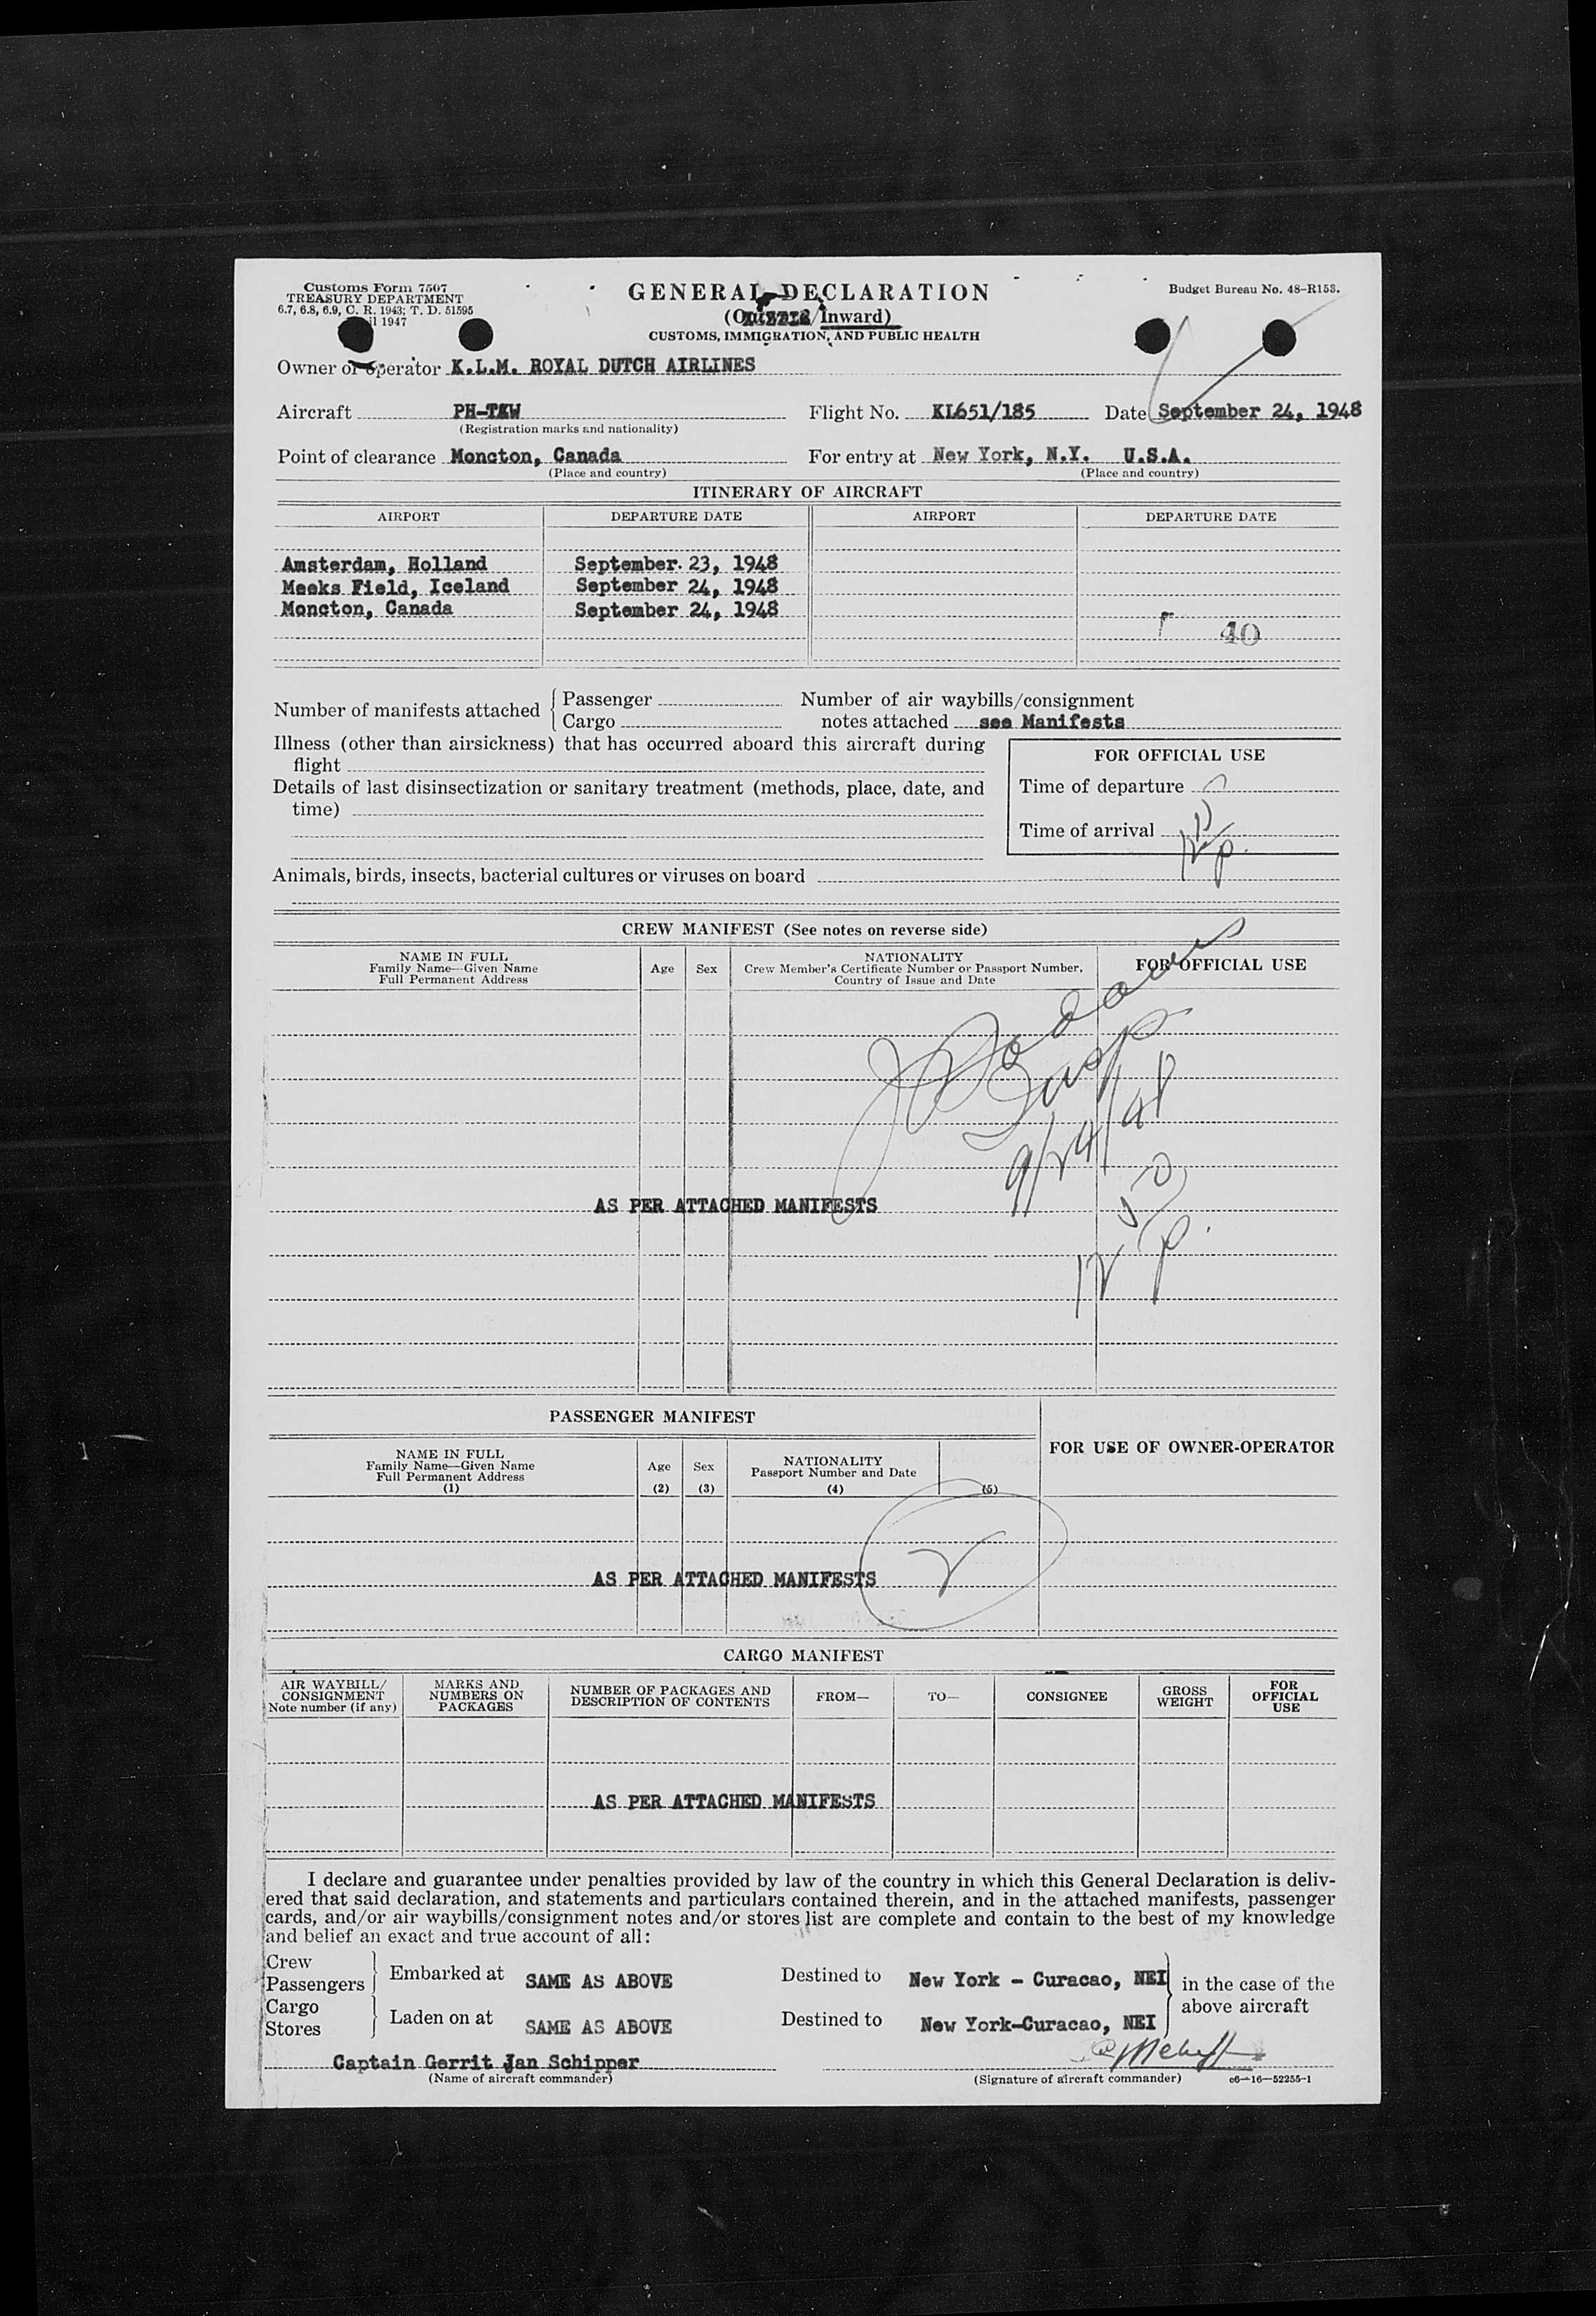 Customs Form 7507
TREASURY DEPARTMENT
6.7, 6.8, 6.9, C. R. 1943; T. D. 51595
1947
GENERAL DECLARATION
(Outward/Inward)
CUSTOMS, IMMIGRATION, AND PUBLIC HEALTH
Budget Bureau No. 48–R153.
Owner or operator K.L.M. ROYAL DUTCH AIRLINES
Aircraft PH-TKW Flight No. KL651/185 Date September 24, 1948
(Registration marks and nationality)
Point of clearance Moncton, Canada For entry at New York, N.Y. U.S.A.
(Place and country) (Place and country)
ITINERARY OF AIRCRAFT
AIRPORT DEPARTURE DATE AIRPORT DEPARTURE DATE
Amsterdam, Holland September 23, 1948
Meeks Field, Iceland September 24, 1948
Moncton, Canada September 24, 1948
40
Number of manifests attached { Passenger Number of air waybills/consignment
Cargo notes attached see Manifests
Illness (other than airsickness) that has occurred aboard this aircraft during
flight
FOR OFFICIAL USE
Details of last disinsectization or sanitary treatment (methods, place, date, and
time)
Time of departure
Time of arrival
Animals, birds, insects, bacterial cultures or viruses on board
CREW MANIFEST (See notes on reverse side)
NAME IN FULL
Family Name—Given Name
Full Permanent Address
Age Sex
NATIONALITY
Crew Member's Certificate Number or Passport Number,
Country of Issue and Date
FOR OFFICIAL USE
Insp
9/24/48
AS PER ATTACHED MANIFESTS
PASSENGER MANIFEST
NAME IN FULL
Family Name—Given Name
Full Permanent Address
(1)
Age
(2)
Sex
(3)
NATIONALITY
Passport Number and Date
(4)
(5)
FOR USE OF OWNER-OPERATOR
AS PER ATTACHED MANIFESTS
CARGO MANIFEST
AIR WAYBILL/
CONSIGNMENT
Note number (if any)
MARKS AND
NUMBERS ON
PACKAGES
NUMBER OF PACKAGES AND
DESCRIPTION OF CONTENTS
FROM—
TO—
CONSIGNEE
GROSS
WEIGHT
FOR
OFFICIAL
USE
AS PER ATTACHED MANIFESTS
I declare and guarantee under penalties provided by law of the country in which this General Declaration is deliv-
ered that said declaration, and statements and particulars contained therein, and in the attached manifests, passenger
cards, and/or air waybills/consignment notes and/or stores list are complete and contain to the best of my knowledge
and belief an exact and true account of all:
Crew
Passengers } Embarked at SAME AS ABOVE Destined to New York - Curacao, NEI } in the case of the
Cargo above aircraft
Stores } Laden on at SAME AS ABOVE Destined to New York-Curacao, NEI
Captain Gerrit Jan Schipper
(Name of aircraft commander) (Signature of aircraft commander) c6—16—52255-1